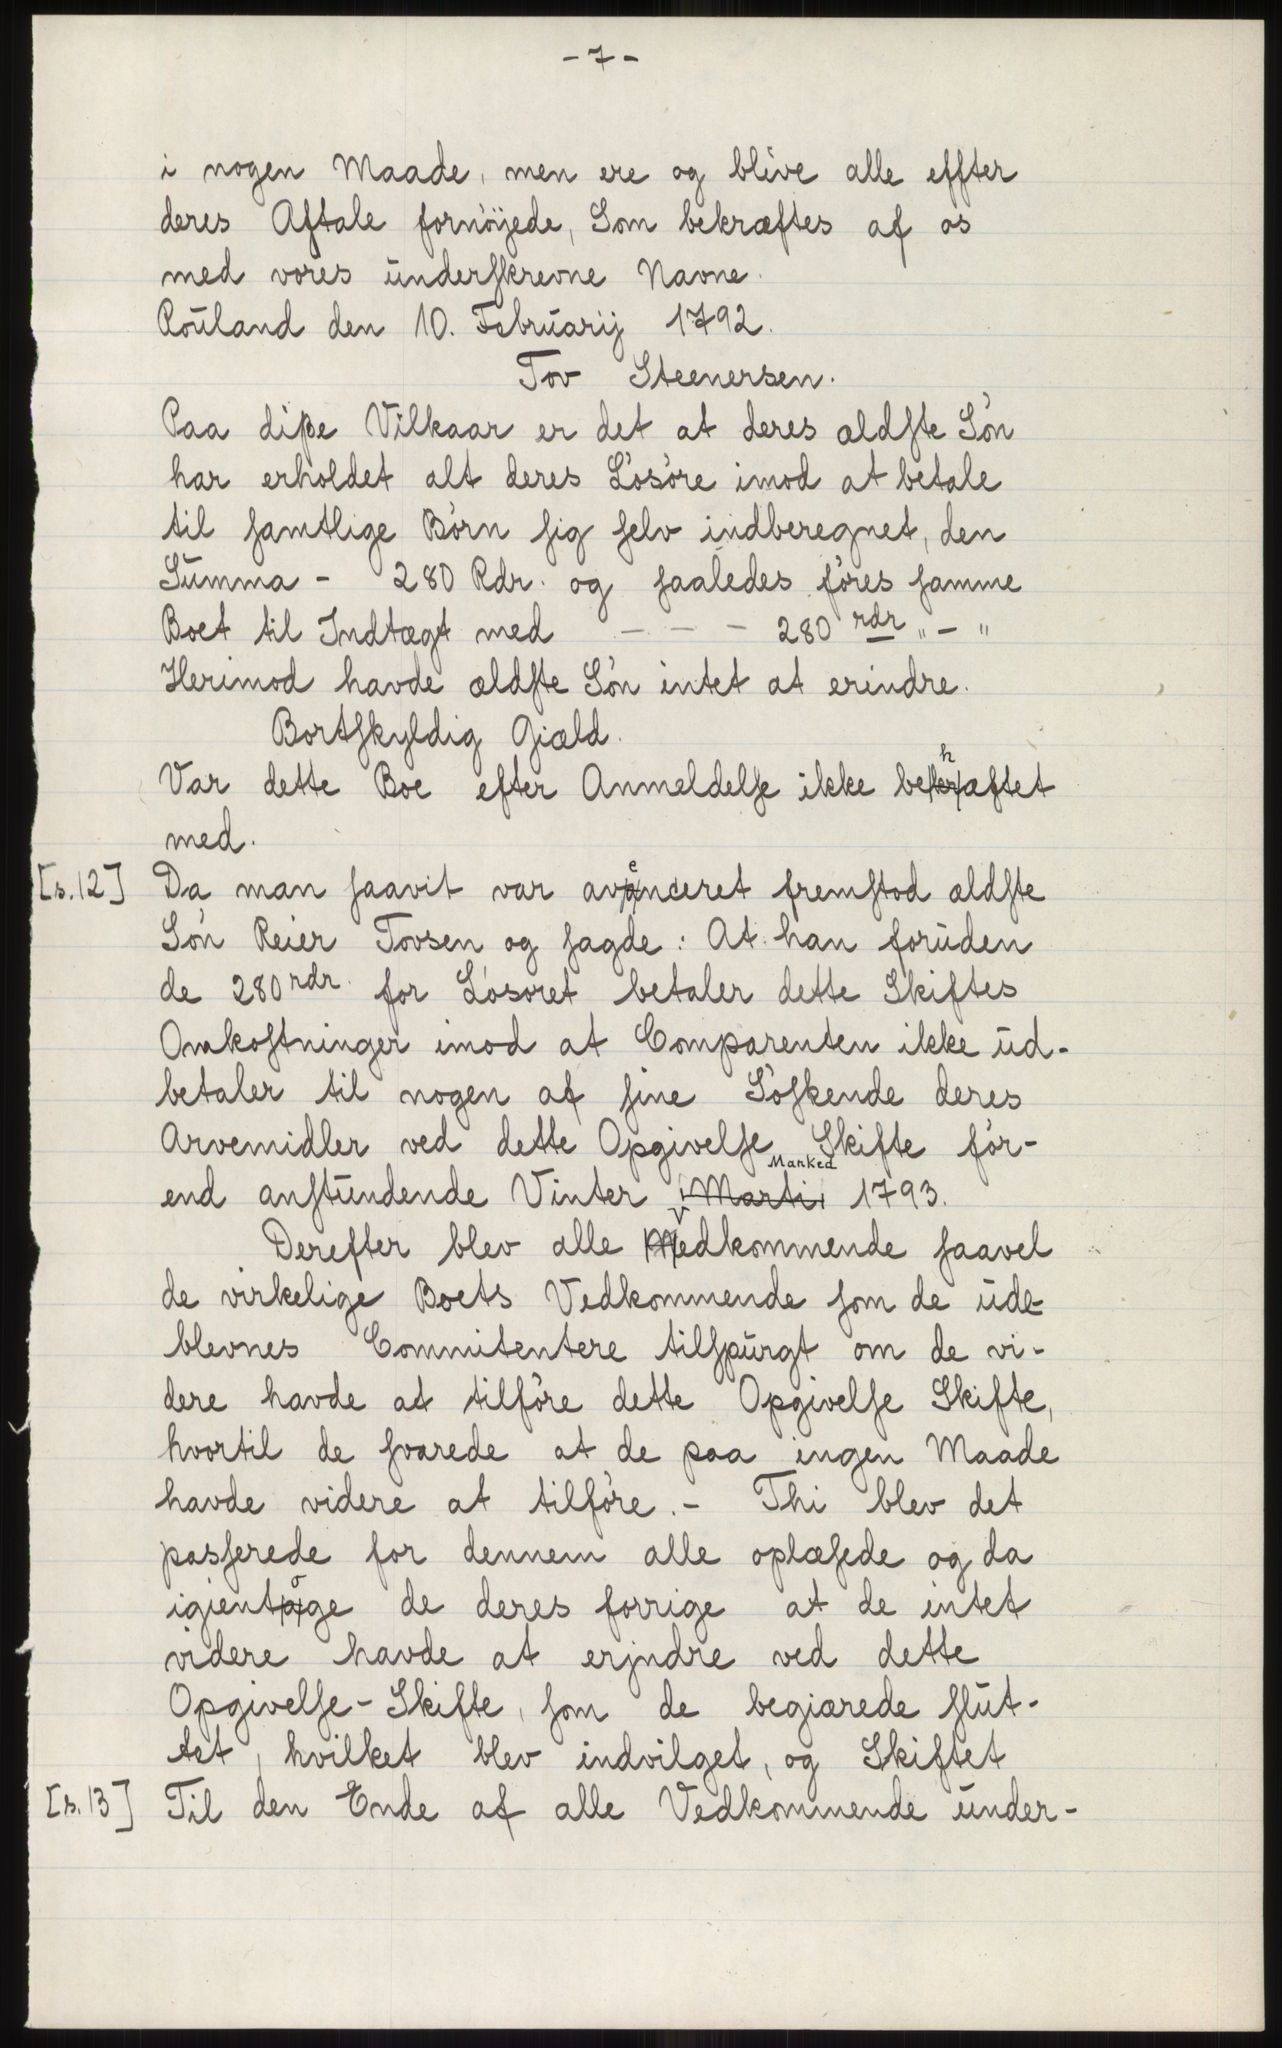 - 7 -
i nogen Maade, men ere og blive alle effter
deres Aftale fornöyede, Som bekræftes af os
med vores underskrevne Navne.
Rouland den 10. Februarij 1792.
Tov Steenersen.
Paa diße Vilkaar er det at deres ældste Sön
har erholdet alt deres Lösöre imod at betale
til samtlige Börn sig selv indberegnet, den
Summa - 280 Rdr. og saaledes föres samme
Boet til Indtægt med - - - 280 rdr „ - „
Herimod havde ældste Sön intet at erindre.
Bortskyldig Giæld.
h
Var dette Boe efter Anmeldelse ikke bekræftet
med.
e
[s.12] Da man saavit var avanceret fremstod ældste
Sön Reier Tovsen og sagde: At han foruden
de 280 rdr. for Lösoret betaler dette Skiftes
Omkostninger imod at Comparenten ikke ud-
betaler til nogen af sine Söskende deres
Arvemidler ved dette Opgivelse Skifte för-
Marked
end anstundende Vinter Marti 1793.
V
Derefter blev alle Medkommende saavel
de virkelige Boets Vedkommende som de ude
blevnes Commitentere tilspurgt om de vi-
dere havde at tilföre dette Opgivelse Skifte,
hvortil de svarede at de paa ingen Maade
havde videre at tilföre. - Thi blev det
passerede for dennem alle oplæsede og da
o
igientage de deres forrige at de intet
videre havde at erjndre ved dette
Opgivelse-Skifte, som de begiærede slut-
tet, hvilket blev indvilget, og Skiftet
[s.13] Til den Ende af alle Vedkommende under-